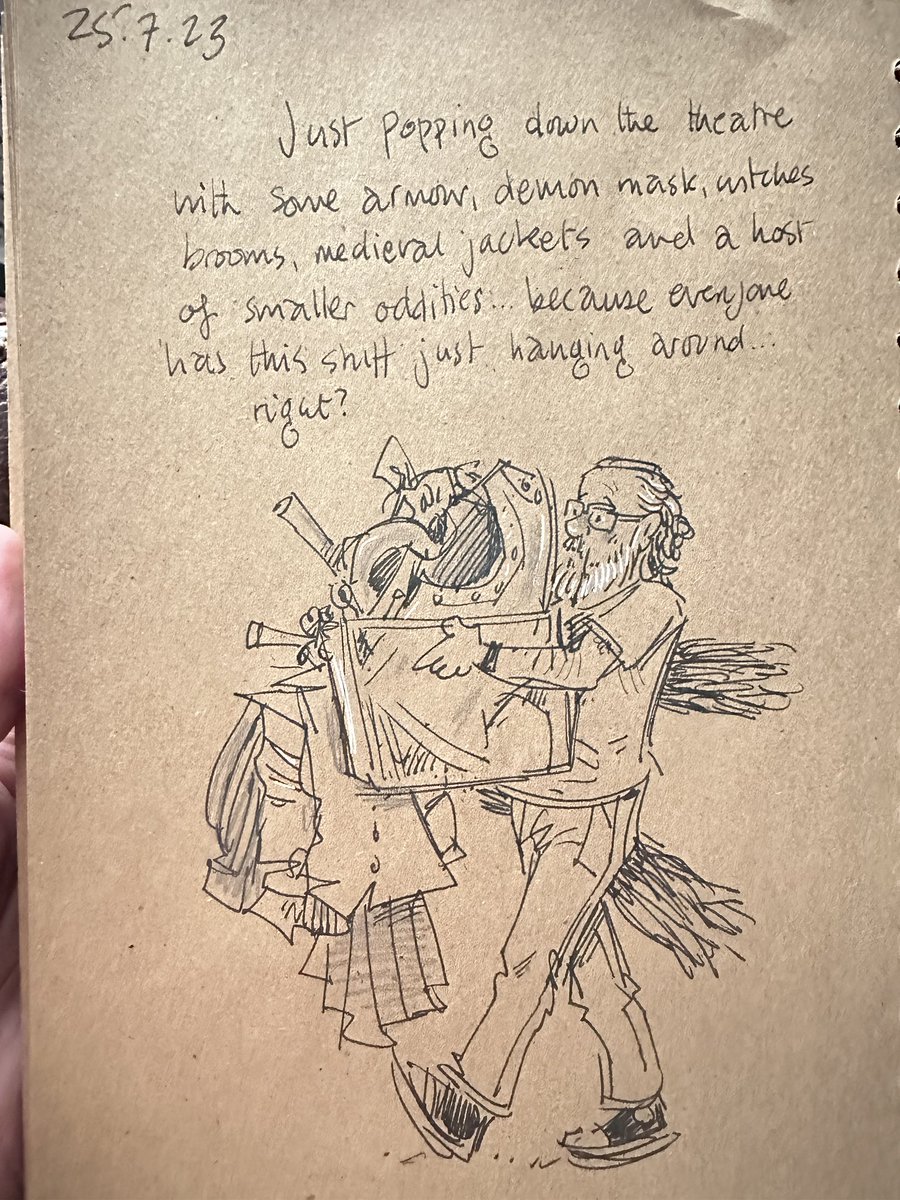 25.7.23
Just popping down the theatre
with some armour, demon mask, witches
brooms, medieval jackets and a host
of smaller oddities... because everyone
has this stuff just hanging around...
right?